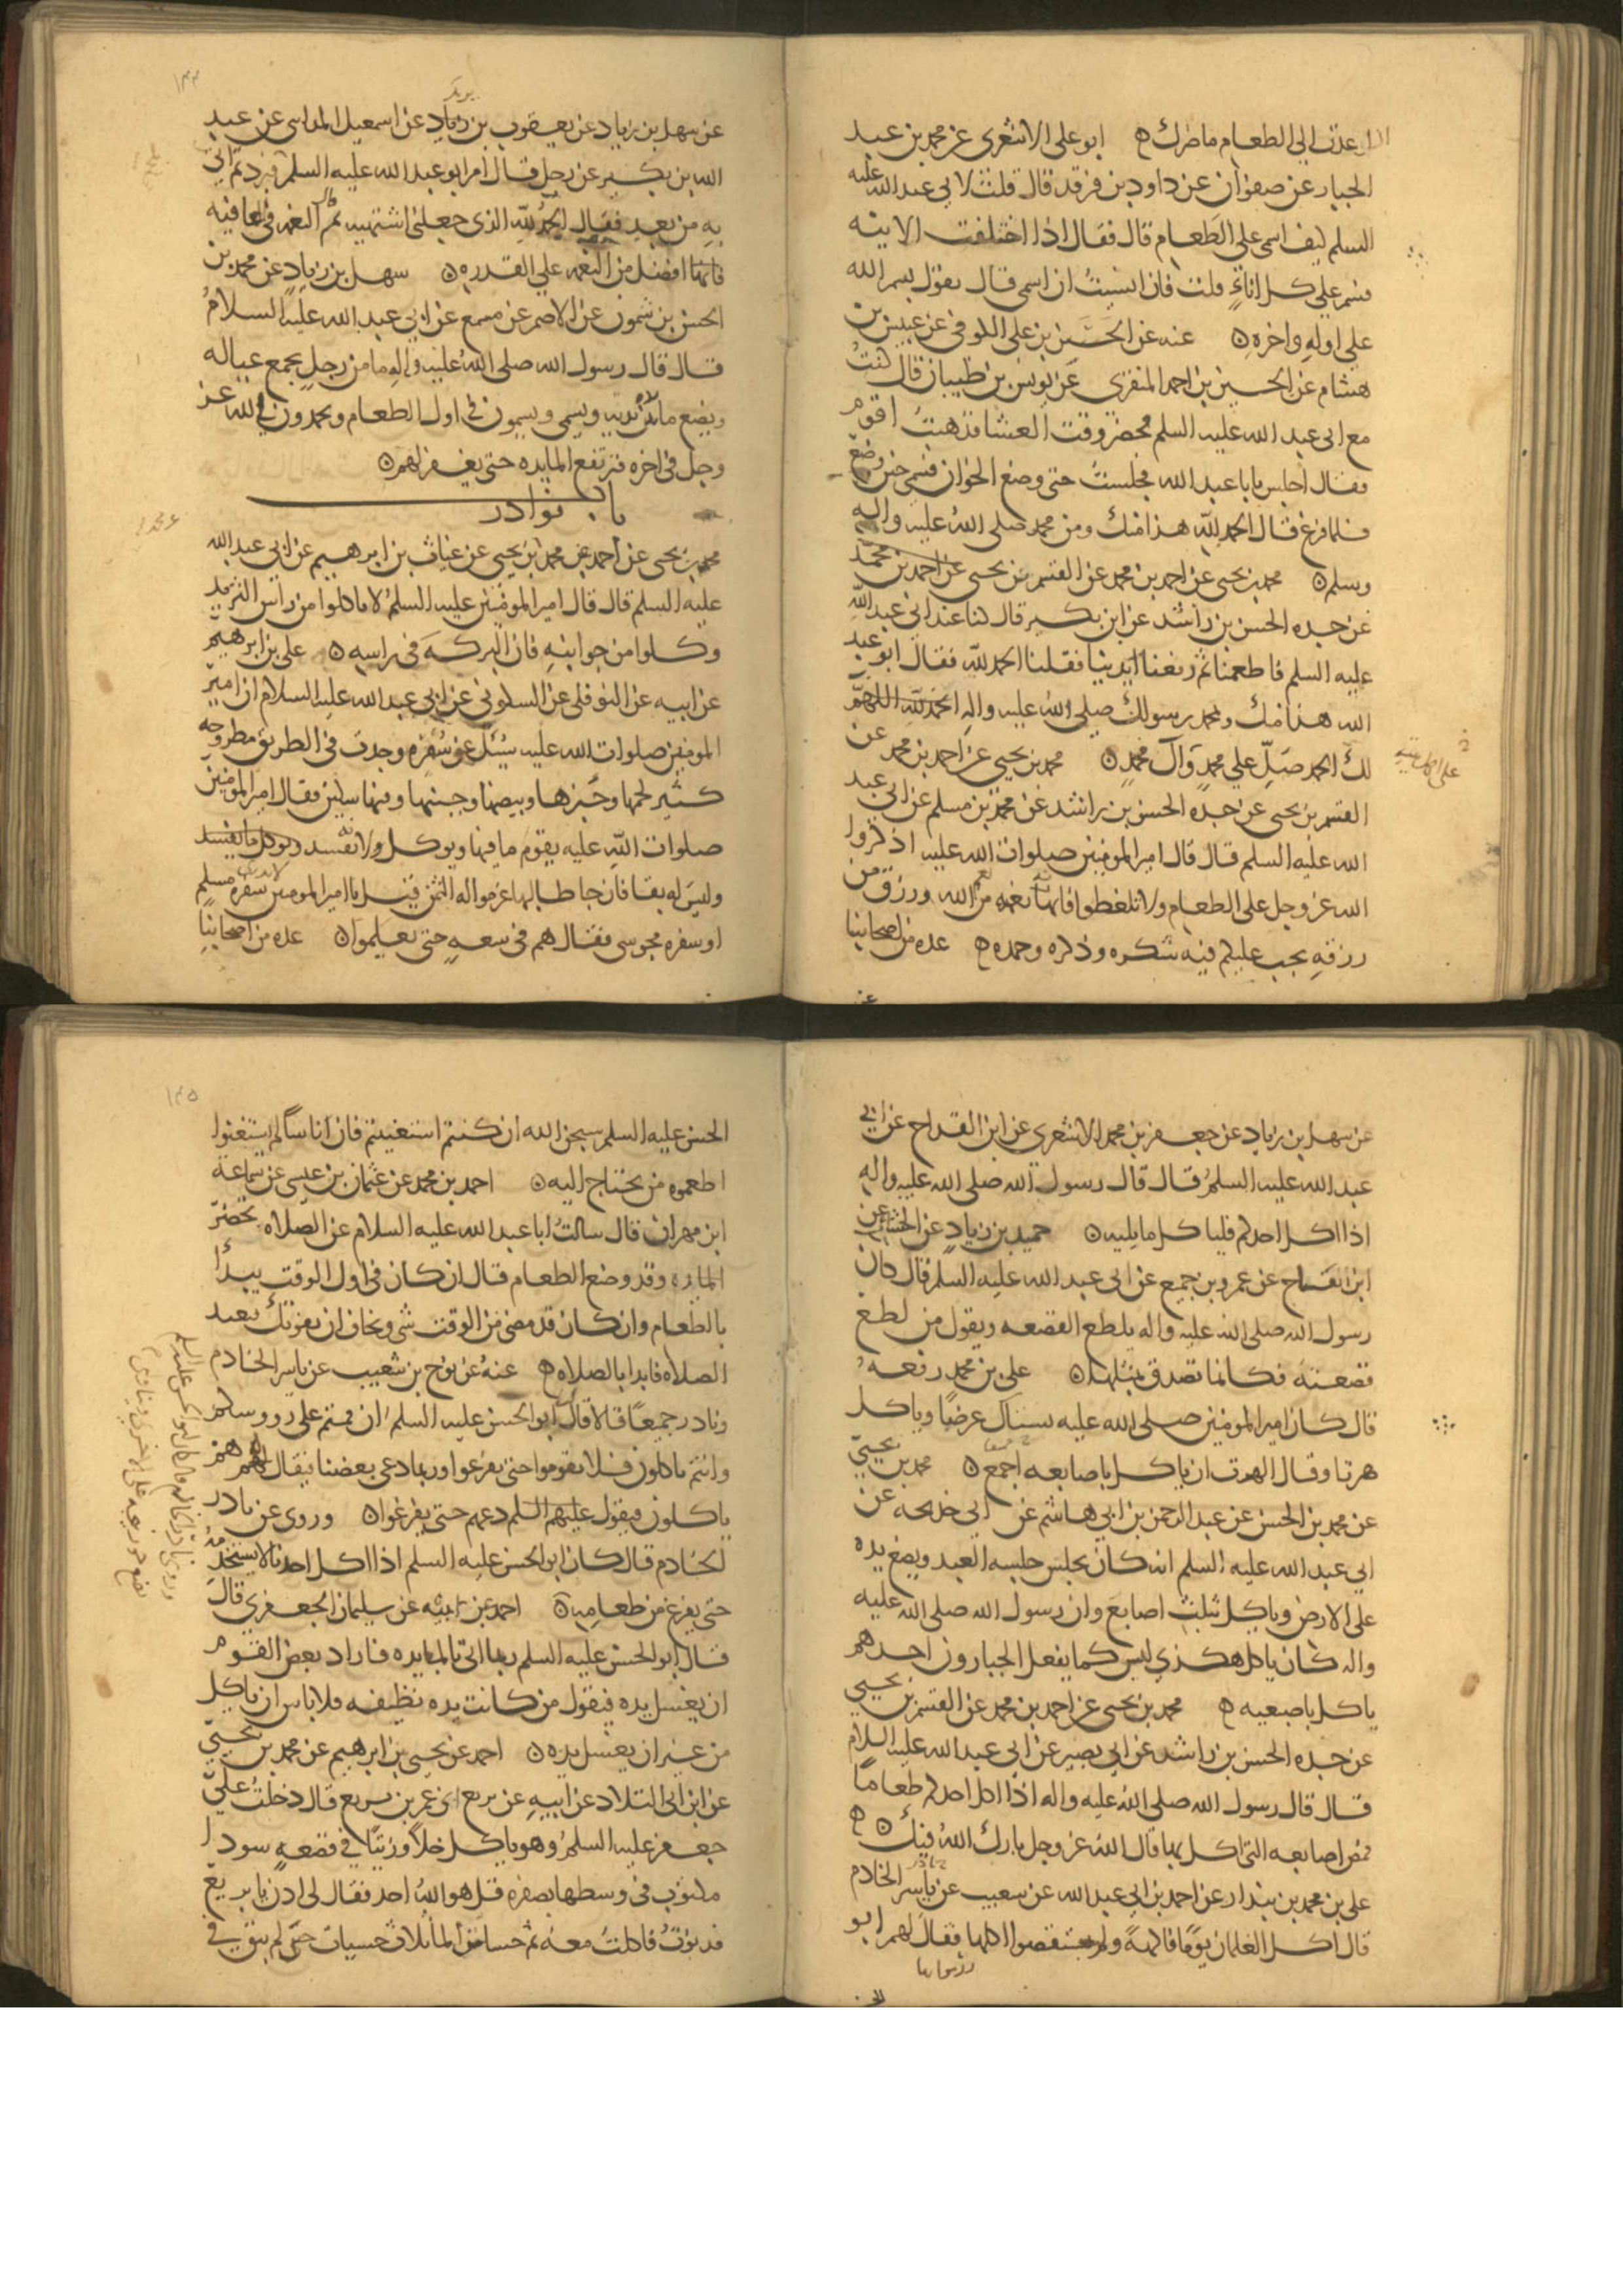 عدت الى الطعام ما ضرك ه ابو على الاشعرى عن محمد بن عبد
الجبار عن صفوان عن داود بن فرقد قال قلت لابى عبد الله عليه
السلم كيف اسمى على الطعام قال فقال اذا اختلفت الانيه
فسم على كل اناءٍ قلت فان نسيتُ ان اسمى قال يقول بسم الله
على اوله واخره ه عنه عن الحسن بن على الكوفى عن عبيس بن
هشام عن الحسين بن احمد المنقرى عن يونس بن ظبيان قال كنتُ
مع ابى عبد الله عليه السلم فحضر وقت العشا فذهبتُ اقوم
فقال اجلس يا با عبد الله فجلستُ حتى وضع الخوان فسمى حين وضع
فلما فرغ قال الحمد لله هذا منك ومن محمد صلى الله عليه واله
وسلم ه محمد بن يحيى عن احمد بن محمد عن القسم بن يحيى عن احمد بن محمد
عن جده الحسن بن راشد عن ابن بكير قال كنا عند ابى عبد الله
عليه السلم فاطعمنا ثم رفعنا ايدينا فقلنا الحمد لله فقال ابو عبد
الله هذا منك وبمحمد رسولك صلى الله عليه واله الحمد لله اللهم
لك الحمد صلِّ على محمدٍ وآل محمدٍ ه محمد بن يحيى عن احمد بن محمد عن
القسم بن يحيى عن جده الحسن بن راشد عن محمد بن مسلم عن ابى عبد
الله عليه السلم قال قال امير المومنين صلوات الله عليه اذكروا
الله عز وجل على الطعام ولا تلغطوا فانها نعمه من الله ورزق من
رزقه يجب عليكم فيه شكره وذكره وحمده ه عده من اصحابنا
عن
١٣٤
يزيد
عن سهل بن زياد عن يعقوب بن زياد عن اسمعيل المداسى عن عبد
الله بن بكير عن رجل قال امر ابو عبد الله عليه السلم فبرد ثم اتى
به من بعد فقال الحمد لله الذى جعلنى اشتهيه ثم قال النعمه فى العافيه
افضل من النعمه على القدره ه سهل بن زيادٍ عن محمد بن
الحسن بن شمون عن الاصم عن مسمع عن ابى عبد الله عليه السلامُ
قال قال رسول الله صلى الله عليه واله ما من رجلٍ يجمع عياله
ويضع مائدته ويسمى ويسمون فى اول الطعام ويحمدون الله عز
وجل فى اخره فترتفع المايده حتى يغفر لهم ه
باب نوادر
محمد بن يحيى عن احمد بن محمد بن يحيى عن غياث بن ابرهيم عن ابى عبد الله
عليه السلم قال قال امير المومنين عليه السلم لا تاكلوا من راس الثريد
وكلوا من جوانبه فان البركهَ فى راسه ه على بن ابرهيم
عن ابيه عن النوفلى عن السكونى عن ابى عبد الله عليه السلام ان امير
المومنين صلوات الله عليه سُئل عن سُفره وجدت فى الطريق مطروحه
كثير لحمها وخبزها وبيضها وجبنها وفيها سكين فقال امير المومنين
صلوات الله عليه يقوم ما فيها ويوكل ولانه تفسد
وليس له بقا فان جا طالبها غرموا له الثمن قيل يا امير المومنين لا ندرى سفره مسلم
او سفره مجوسى فقال هم فى سعهٍ حتى يعلموا ه عده من اصحابنا
عن سهل بن زياد عن جعفر بن محمد الاشعرى عن ابن القداح عن ابى
عبد الله عليه السلمُ قال قال رسول الله صلى الله عليه واله
اذا اكل احدكم فلياكل مما يليه ه حميد بن زيادٍ عن الخشاب عن
ابن بقاح عن عمرو بن جميع عن ابى عبد الله عليه السلم قال كان
رسول الله صلى الله عليه واله يلطع القصعه ويقول من لطع
قصعته فكانما تصدق بمثلها ه على بن محمد رفعهُ
قال كان امير المومنين صلى الله عليه يستاك عرضًا وياكل
هرتا وقال الهرت ان ياكل باصابعه اجمع ه محمد بن يحيى
عن محمد بن الحسن عن عبد الرحمن بن ابى هاشم عن ابى خديجه عن
ابى عبد الله عليه السلم انه كان يجلس جلسه العبد ويضع يده
على الارض وياكل بثلث اصابعَ وان رسول الله صلى الله عليه
واله كان ياكل هكذى ليس كما يفعل الجبارون احدهم
ياكل باصبعيه ه محمد بن يحيى عن احمد بن محمد عن القسم بن يحيى
عن جده الحسن بن راشد عن ابى بصير عن ابى عبد الله عليه السلام
قال قال رسول الله صلى الله عليه واله اذا اكل احدكم طعامًا
فمص اصابعه التى اكل بها قال الله عز وجل بارك اللهُ فيك ه
على بن محمد بن بندار عن احمد بن ابى عبد الله عن نوح بن شعيب عن ياسر الخادم
قال اكل الغلمان يومًا فاكهةً ولم يستقصوا اكلها فقال لهم ابو
ورموا بها
١٣٥
الحسن عليه السلم سبحن الله ان كنتم استغنيتم فان اناسًا لم يستغنوا
اطعموه من يحتاج اليه ه احمد بن محمد عن عثمان بن عيسى عن سماعة
ابن مهران قال سالتُ ابا عبد الله عليه السلام عن الصلاه تحضر
المايده وقد وضع الطعام قال ان كان فى اول الوقت يبدأ
بالطعام وان كان قد مضى من الوقت شى وتخاف ان يفوتك بعيد
الصلاه فابدا بالصلاه ه عنهُ عن نوح بن شعيب عن ياسر الخادم
ونادر جميعًا قالا قال ابو الحسن عليه السلم ان قمتم على رووسكم
وانتم تاكلون فلا تقوموا حتى تفرغوا وربما دعى بعضنا فيقال هم
ياكلون فيقول عليهم السلم دعهم حتى يفرغوا ه وروى عن نادر
الخادم قال كان ابو الحسن عليه السلم اذا اكل احدنا لا يستخدمهُ
حتى يفرغ من طعامه ه احمد عن ابيه عن سليمان الجعفرى قال
قال ابو الحسن عليه السلم ربما اتى بالمايده فاراد بعض القوم
ان يغسل يده فيقول من كانت يده نظيفه فلا باس ان ياكل
من غير ان يغسل يده ه احمد عن يحيى بن ابرهيم عن محمد بن يحيى
عن ابن ابى البلاد عن ابيه عن بزيع بن عمر بن بزيع قال دخلتُ على
جعفر عليه السلم وهو ياكل خلاً وزيتًا فى قصعهٍ سودا
مكتوب فى وسطها بصفره قل هو اللهُ احد فقال لى ادن يا بزيع
فدنوتُ فاكلتُ معهُ ثم حسا من الما ثلاث حسيات حتى لم يبق فى